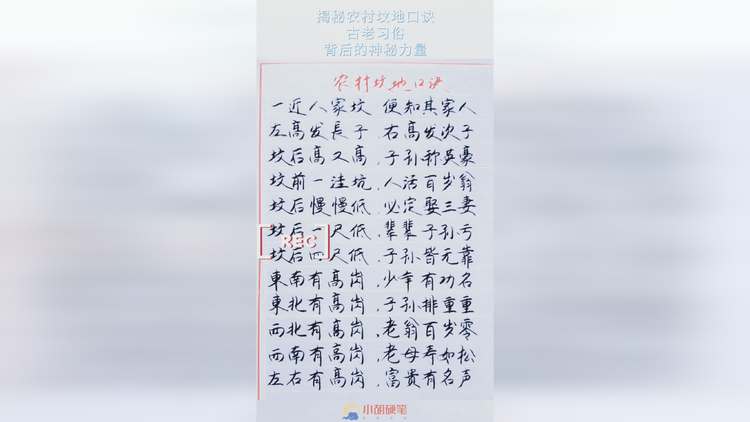 揭秘农村坟地口诀
古老习俗
背后的神秘力量
农村坟地口诀
一近人家坟 便知其家人
左高发長子 右高发次子
坟后高又高,子孙称英豪
坟前一洼坑,人活百岁翁
坟后慢慢低,必定娶三妻
坟后一尺低,辈辈子孙亏
REC
坟后四尺低,子孙皆无靠
東南有高岗,少年有功名
東北有高岗,子孙排重重
西北有高岗,老翁百岁零
西南有高岗,老母寿如松
左右有高岗,富贵有名声
小胡硬笔